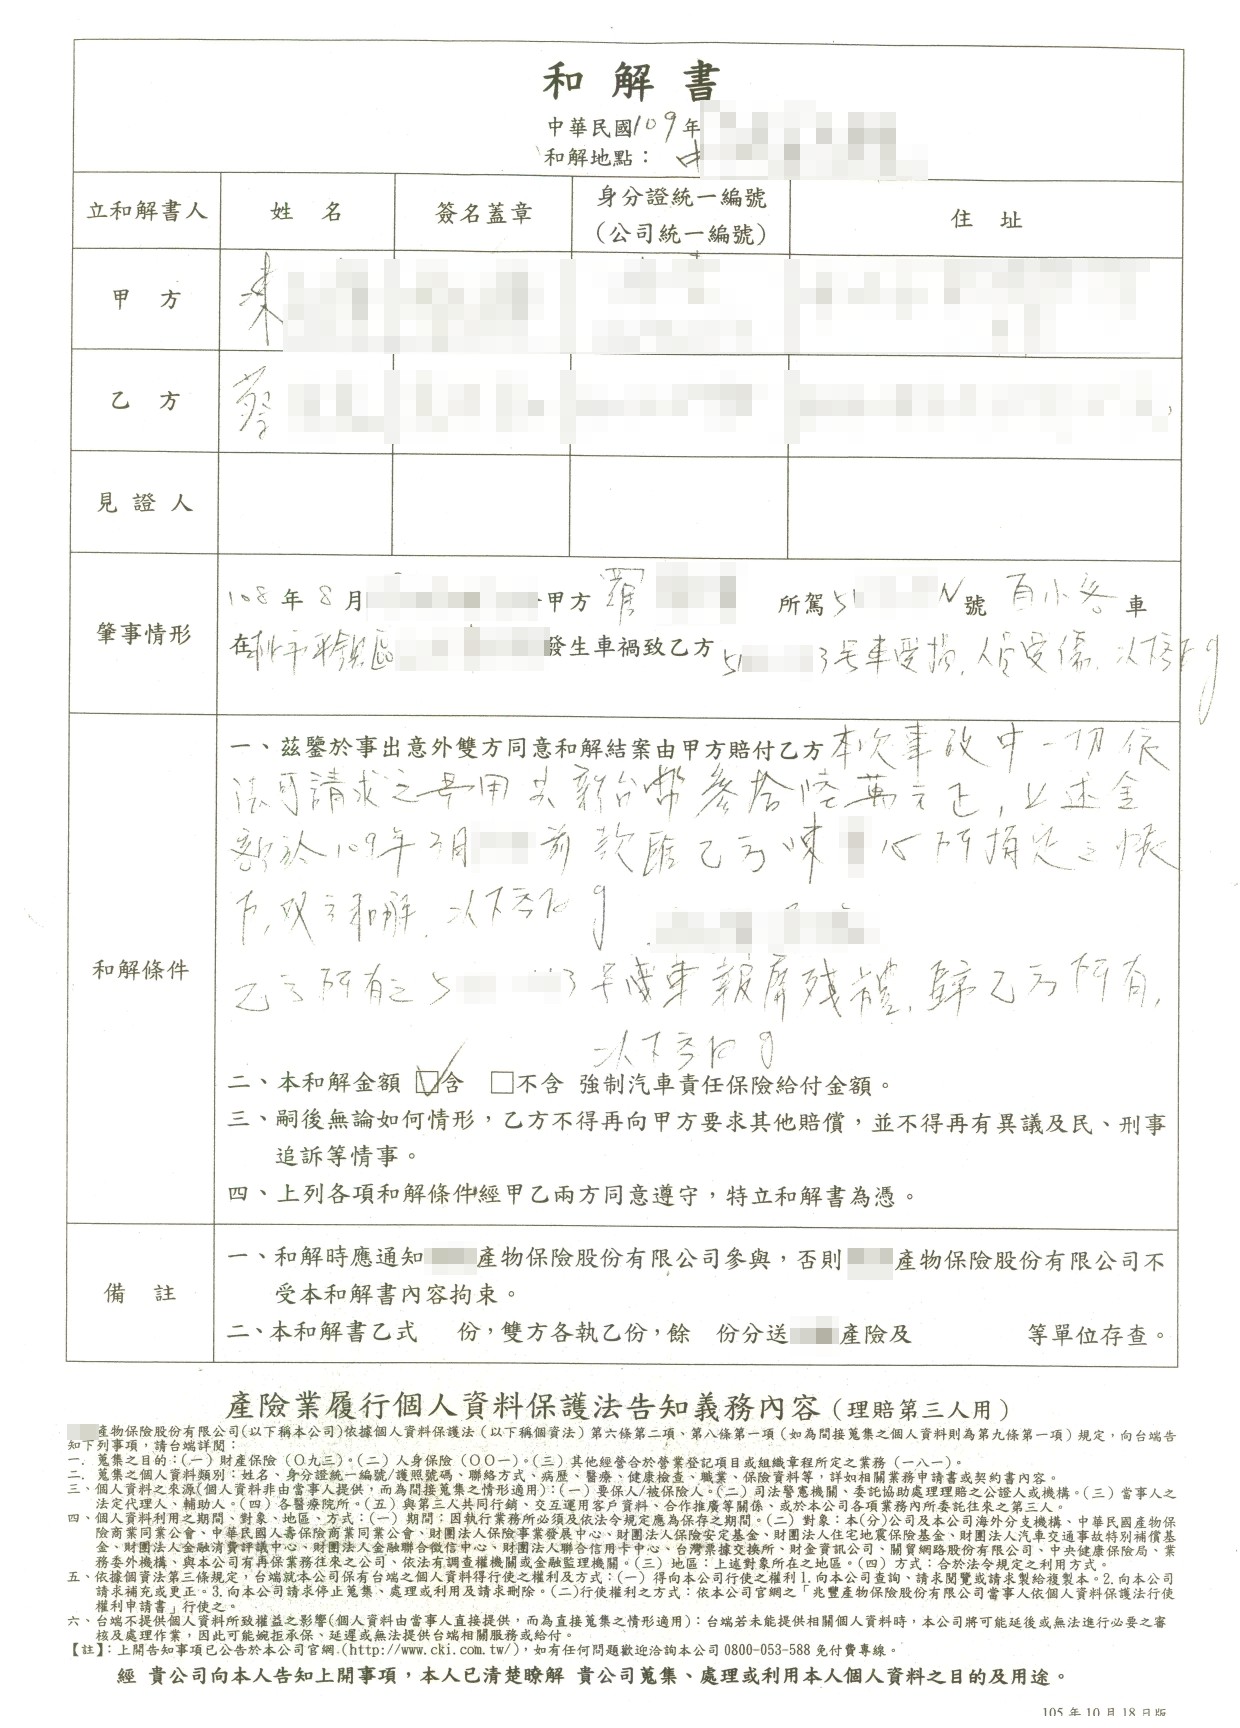 和解書
中華民國109年
和解地點： 中
立和解書人 姓 名 簽名蓋章 身分證統一編號（公司統一編號） 住 址
甲 方
乙 方 蔡
見 證 人
肇事情形
108 年 8 月 甲方 羅 所駕 51 N 號 自小客 車
在 桃市平鎮區 發生車禍致乙方 51 3號車受損，人員受傷，以下空白
和解條件
一、茲鑒於事出意外雙方同意和解結案由甲方賠付乙方 本次事故中一切依
法可請求之費用共新台幣參拾陸萬元正，上述金
額於109年3月 前款匯乙方陳 所指定之帳
戶，雙方和解，以下空白
乙方所有之5 3號機車報廢殘體，歸乙方所有，
以下空白
二、本和解金額 ☑含 □不含 強制汽車責任保險給付金額。
三、嗣後無論如何情形，乙方不得再向甲方要求其他賠償，並不得再有異議及民、刑事
追訴等情事。
四、上列各項和解條件經甲乙兩方同意遵守，特立和解書為憑。
備 註
一、和解時應通知 產物保險股份有限公司參與，否則 產物保險股份有限公司不
受本和解書內容拘束。
二、本和解書乙式 份，雙方各執乙份，餘 份分送 產險及 等單位存查。
產險業履行個人資料保護法告知義務內容（理賠第三人用）
產物保險股份有限公司(以下稱本公司)依據個人資料保護法（以下稱個資法）第六條第二項、第八條第一項（如為間接蒐集之個人資料則為第九條第一項）規定，向台端告
知下列事項，請台端詳閱：
一. 蒐集之目的：(一) 財產保險（○九三）。(二) 人身保險（○○一）。(三) 其他經營合於營業登記項目或組織章程所定之業務（一八一）。
二. 蒐集之個人資料類別：姓名、身分證統一編號/護照號碼、聯絡方式、病歷、醫療、健康檢查、職業、保險資料等，詳如相關業務申請書或契約書內容。
三、個人資料之來源(個人資料非由當事人提供，而為間接蒐集之情形適用)：(一) 要保人/被保險人。(二) 司法警憲機關、委託協助處理理賠之公證人或機構。(三) 當事人之
法定代理人、輔助人。(四) 各醫療院所。(五) 與第三人共同行銷、交互運用客戶資料、合作推廣等關係、或於本公司各項業務內所委託往來之第三人。
四、個人資料利用之期間、對象、地區、方式：(一) 期間：因執行業務所必須及依法令規定應為保存之期間。(二) 對象：本(分)公司及本公司海外分支機構、中華民國產物保
險商業同業公會、中華民國人壽保險商業同業公會、財團法人保險事業發展中心、財團法人保險安定基金、財團法人住宅地震保險基金、財團法人汽車交通事故特別補償基
金、財團法人金融消費評議中心、財團法人金融聯合徵信中心、財團法人聯合信用卡中心、台灣票據交換所、財金資訊公司、關貿網路股份有限公司、中央健康保險局、業
務委外機構、與本公司有再保業務往來之公司、依法有調查權機關或金融監理機關。(三) 地區：上述對象所在之地區。(四) 方式：合於法令規定之利用方式。
五、依據個資法第三條規定，台端就本公司保有台端之個人資料得行使之權利及方式：(一) 得向本公司行使之權利 1.向本公司查詢、請求閱覽或請求製給複製本。2.向本公司
請求補充或更正。3.向本公司請求停止蒐集、處理或利用及請求刪除。(二)行使權利之方式：依本公司官網之「兆豐產物保險股份有限公司當事人依個人資料保護法行使
權利申請書」行使之。
六、台端不提供個人資料所致權益之影響(個人資料由當事人直接提供，而為直接蒐集之情形適用)：台端若未能提供相關個人資料時，本公司將可能延後或無法進行必要之審
核及處理作業，因此可能婉拒承保、延遲或無法提供台端相關服務或給付。
【註】：上開告知事項已公告於本公司官網.(http://www.cki.com.tw/)，如有任何問題歡迎洽詢本公司 0800-053-588 免付費專線。
經 貴公司向本人告知上開事項，本人已清楚瞭解 貴公司蒐集、處理或利用本人個人資料之目的及用途。
105 年 10 月 18 日版